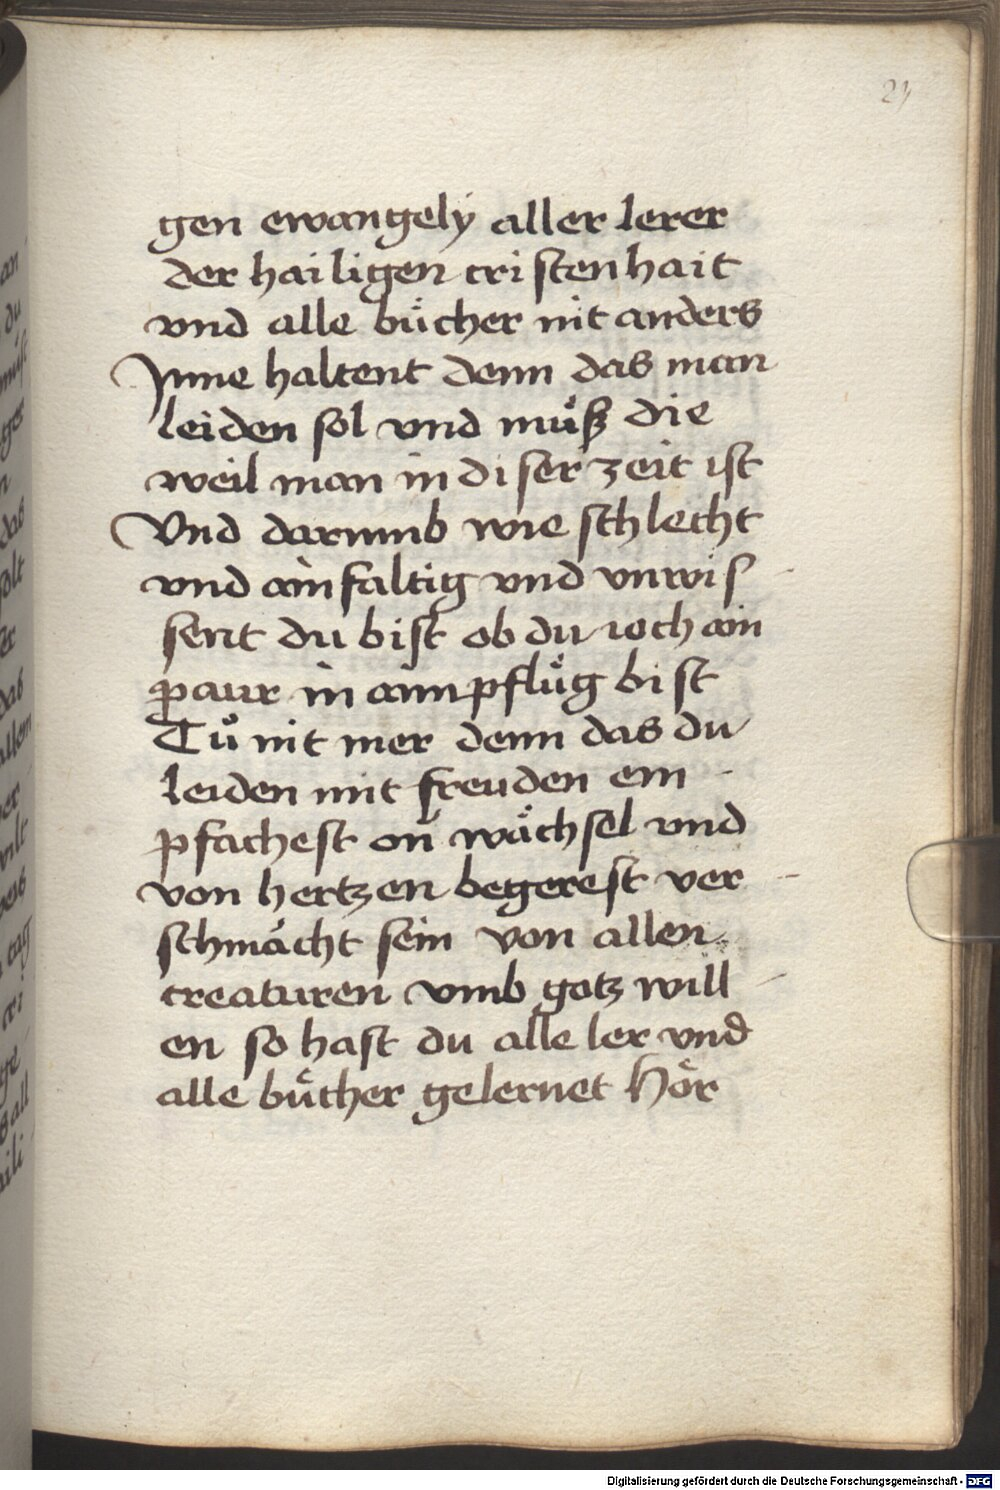 23
gen ewangely aller lerer
der hailigen cristenhait
vnd alle bücher nit anders
Inne haltent denn das man
leiden sol vnd můß die
weil man in diser zeit ist
Vnd darumb wie schlecht
vnd ainfaltig vnd vnwis-
sent du bist ob du ioch ain
paur in aim pflůg bist
Tů nit mer denn das du
leiden mit freuden em-
pfachest on wächsel vnd
von hertzen begerest ver-
schmächt sein von allen
creaturen vmb gotz will-
en so hast du alle ler vnd
alle bücher gelernet Hör
Digitalisierung gefördert durch die Deutsche Forschungsgemeinschaft - DFG